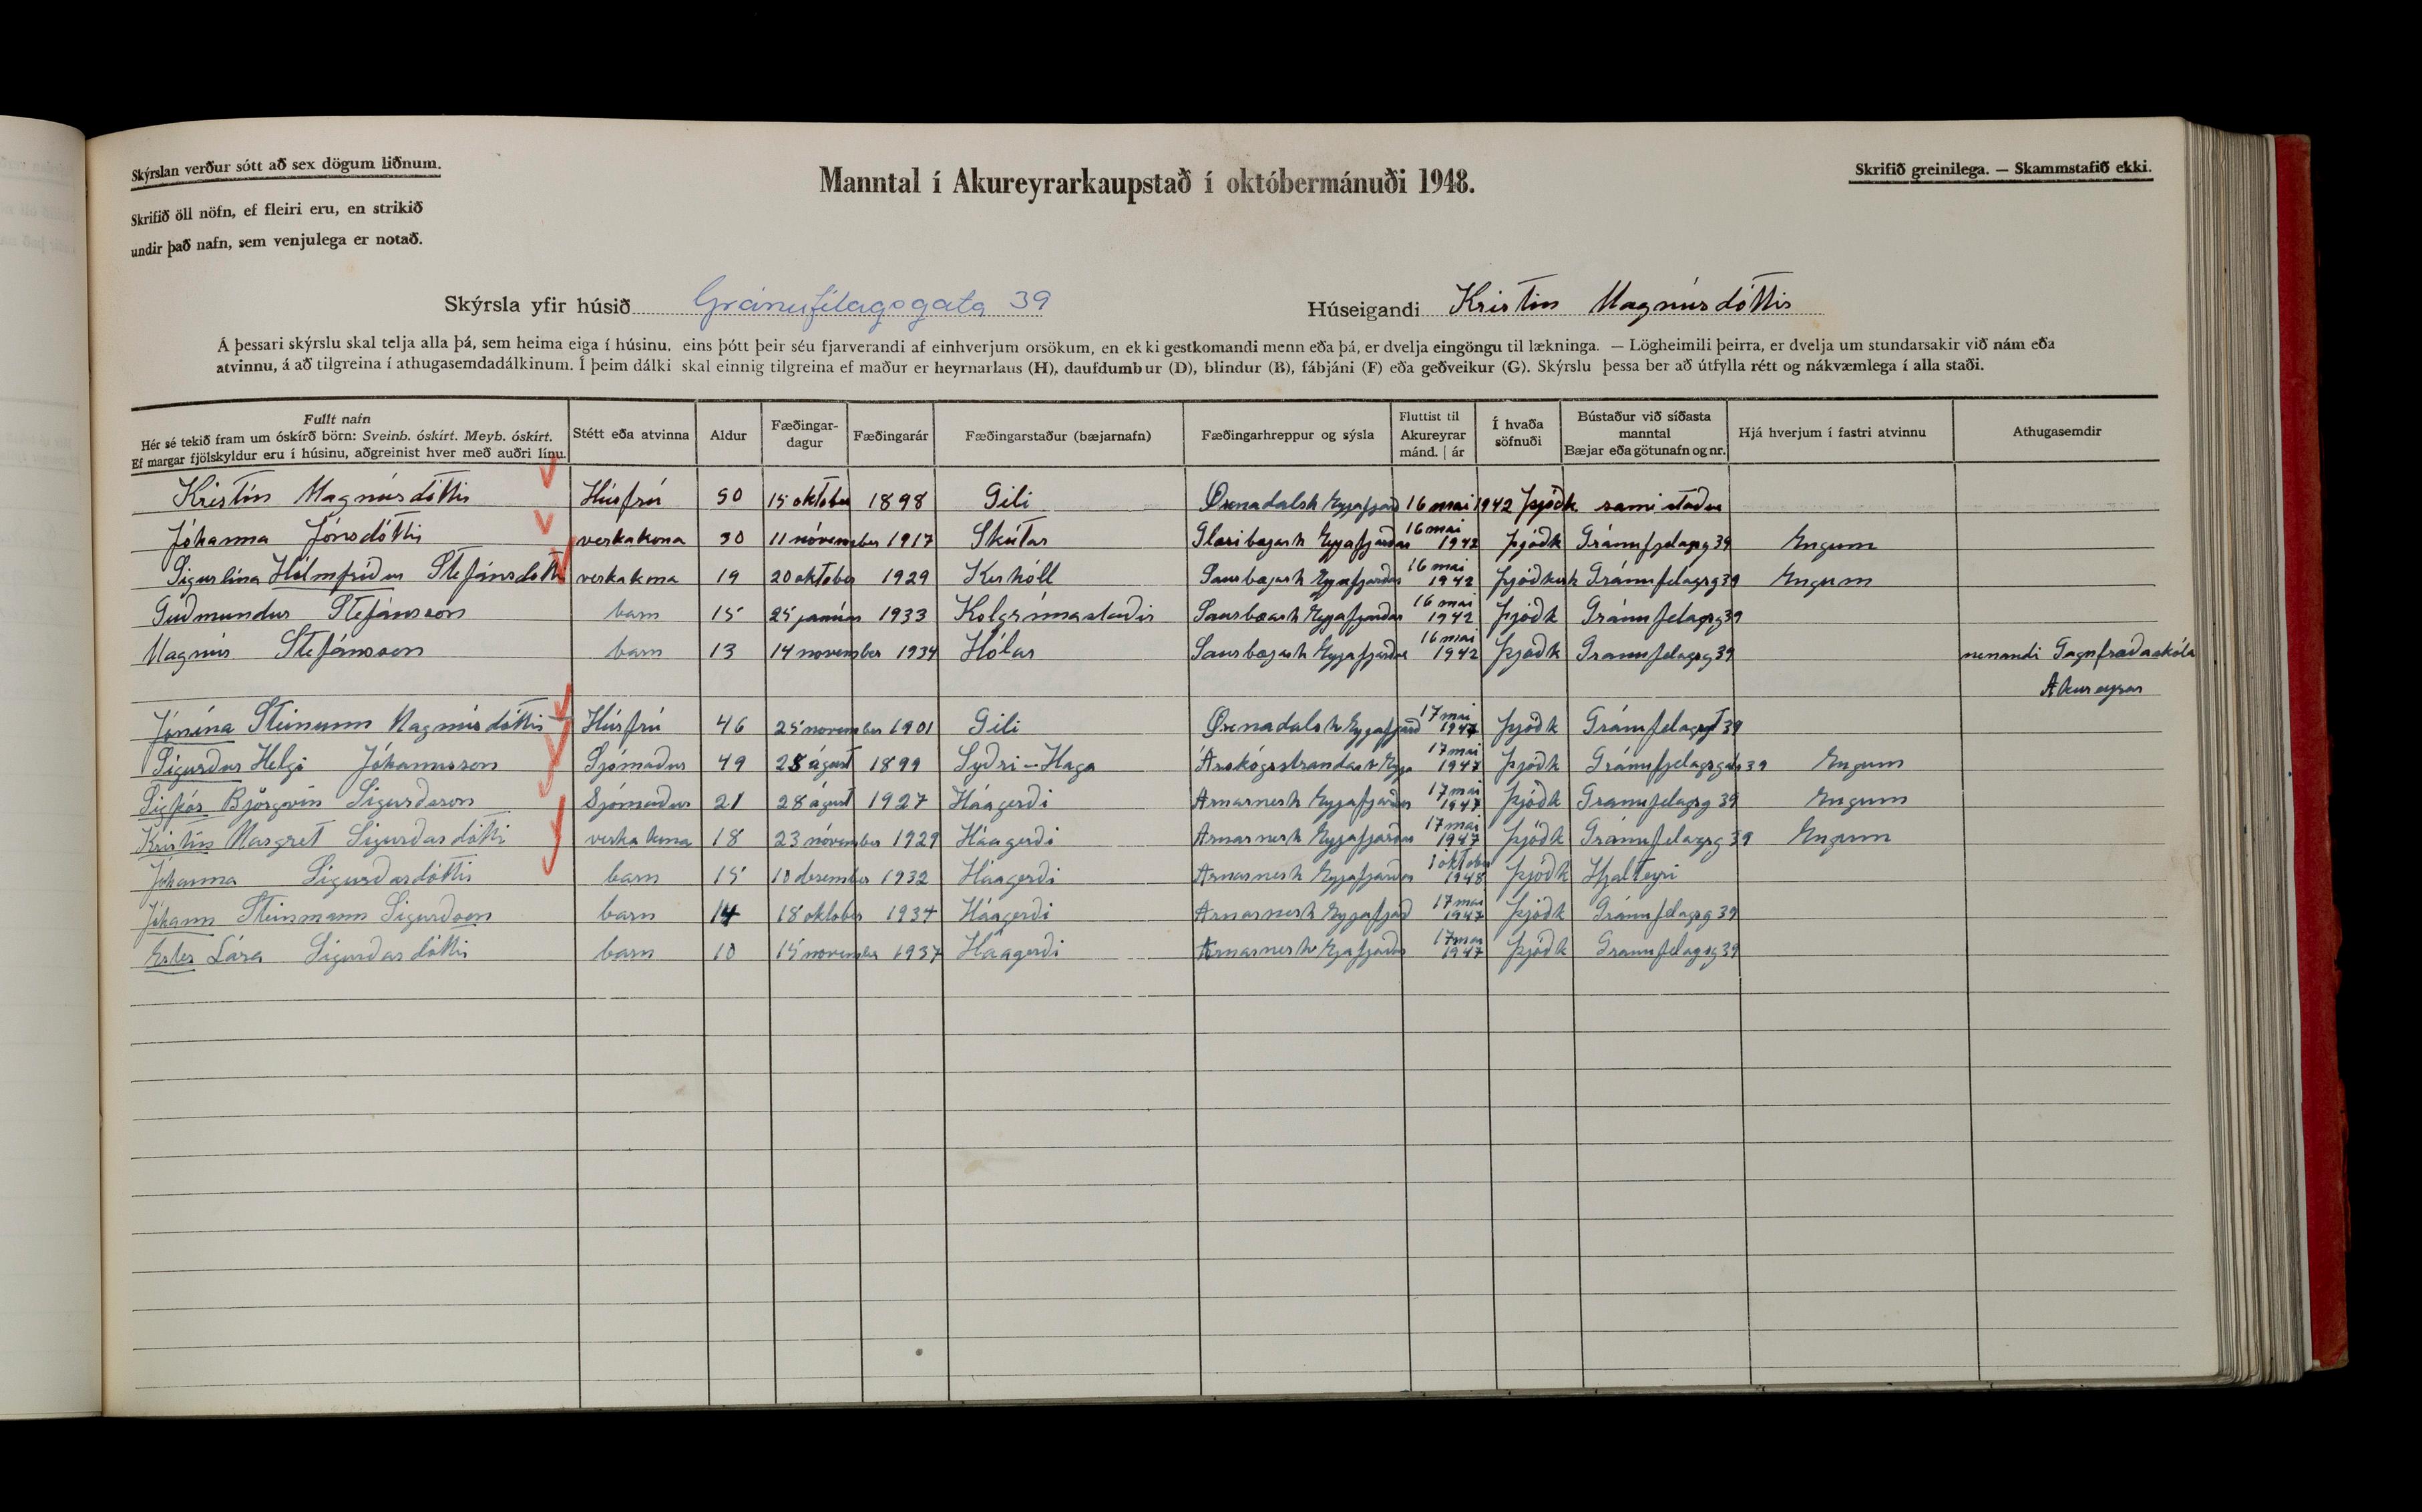 Skýrslan verður sótt að sex dögum liðnum.
Manntal í Akureyrarkaupstað í októbermánuði 1948.
Skrifið greinilega. — Skammstafið ekki.
Skrifið öll nöfn, ef fleiri eru, en strikið
undir það nafn, sem venjulega er notað.
Skýrsla yfir húsið Gránufélagsgata 39 Húseigandi Kristín Magnúsdóttir
Á þessari skýrslu skal telja alla þá, sem heima eiga í húsinu, eins þótt þeir séu fjarverandi af einhverjum orsökum, en ekki gestkomandi menn eða þá, er dvelja eingöngu til lækninga. — Lögheimili þeirra, er dvelja um stundarsakir við nám eða
atvinnu, á að tilgreina í athugasemdadálkinum. Í þeim dálki skal einnig tilgreina ef maður er heyrnarlaus (H), daufdumbur (D), blindur (B), fábjáni (F) eða geðveikur (G). Skýrslu þessa ber að útfylla rétt og nákvæmlega í alla staði.
Fullt nafn
Hér sé tekið fram um óskírð börn: Sveinb. óskírt. Meyb. óskírt.
Ef margar fjölskyldur eru í húsinu, aðgreinist hver með auðri línu.
Stétt eða atvinna
Aldur
Fæðingar-
dagur
Fæðingarár
Fæðingarstaður (bæjarnafn)
Fæðingarhreppur og sýsla
Fluttist til
Akureyrar
mánd. | ár
Í hvaða
söfnuði
Bústaður við síðasta
manntal
Bæjar eða götunafn og nr.
Hjá hverjum í fastri atvinnu
Athugasemdir
Kristín Magnúsdóttir Húsfrú 50 15 október 1898 Gili Öxnadalsh Eyjafjard 16 mai 1942 þjóðk sami staður
Jóhanna Jónsdóttir verkakona 30 11 nóvember 1917 Skútar Glæsibæjarh Eyjafjarðar 16 mai 1942 þjóðk Gránufjelagsg 39 Engum
Sigurlína Hólmfríður Stefánsdóttir verkakona 19 20 október 1929 Kerhóll Saurbæjarh Eyjafjarðar 16 mai 1942 þjóðkirk Gránufélagsg 39 Engum
Guðmundur Stefánsson barn 15 25 janúar 1933 Kolgrímastaðir Saurbæarh Eyjafjarðar 16 mai 1942 þjóðk Gránufelagsg 39
Magnús Stefánsson barn 13 14 november 1934 Hólar Saurbæjarh Eyjafjarðar 16 mai 1942 þjóðk Granufjelagsg 39 nemandi Gagnfræðaskóla
Akureyrar
Jónína Steinunn Magnúsdóttir Húsfrú 46 25 november 1901 Gili Öxnadalsh Eyjafjard 17 mai 1947 þjóðk Gránufelagsgt 39
Sigurður Helgi Jóhannsson Sjómaður 49 28 ágúst 1899 Syðri-Haga Árskógsstrandarh Eyja 17 mai 1947 þjóðk Gránufjelagsgata 39 Engum
Sigþór Björgvin Sigurðsson Sjómaður 21 28 ágúst 1927 Háagerði Arnarnesh Eyjafjarðar 17 mai 1947 þjóðk Granufjelagsg 39 Engum
Kristín Margret Sigurðardóttir verkakona 18 23 nóvember 1929 Háagerði Arnarnesh Eyjafjarðar 17 mai 1947 þjóðk Gránufjelagsg 39 Engum
Jóhanna Sigurðardóttir barn 15 10 desember 1932 Háagerði Arnarnesh Eyjafjarðar 1 október 1948 þjóðk Hjalteyri
Jóhann Steinmann Sigurðsson barn 14 18 oktober 1934 Háagerði Arnarnesh Eyjafjard 17 mai 1947 þjóðk Gránufjelagsg 39
Ester Lára Sigurðardóttir barn 10 15 november 1937 Háagerði Arnarnesh Eyjafjarðar 17 mai 1947 þjóðk Granufjelagsg 39